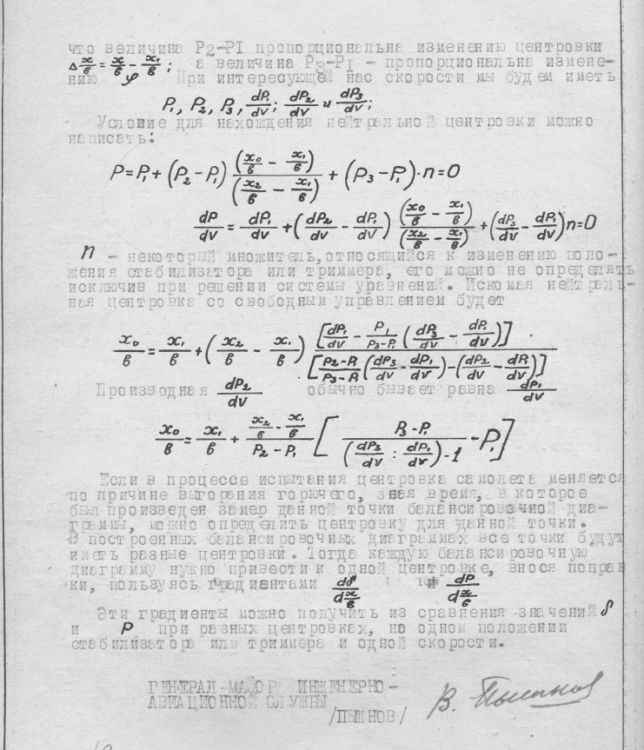 что величина P2-PI пропорциональна изменению центровки
Δx/в = x/в - x₁/в; а величина P3-PI - пропорциональна измене-
нию φ При интересующей нас скорости мы будем иметь
P₁, P₂, P₃, dP₁/dv; dP₂/dv и dP₃/dv;
Условие для нахождения нейтральной центровки можно
написать:
P = P₁ + (P₂ - P₁) (x₀/в - x₁/в)/(x₂/в - x₁/в) + (P₃ - P₁)·n = 0
dP/dv = dP₁/dv + (dP₂/dv - dP₁/dv) (x₀/в - x₁/в)/(x₂/в - x₁/в) + (dP₃/dv - dP₁/dv) n = 0
n - некоторый множитель, относящийся к изменению поло-
жения стабилизатора или триммера, его можно не определять
исключив при решении системы уравнений. Искомая нейтраль-
ная центровка со свободным управлением будет
x₀/в = x₁/в + (x₂/в - x₁/в) [dP₁/dv - P₁/(P₃-P₁) (dP₃/dv - dP₁/dv)] / [(P₂-P₁)/(P₃-P₁) (dP₃/dv - dP₁/dv) - (dP₂/dv - dP₁/dv)]
Производная dP₂/dv обычно бывает равна dP₁/dv
x₀/в = x₁/в + (x₂/в - x₁/в)/(P₂ - P₁) [(P₃ - P₁)/((dP₃/dv : dP₁/dv) - 1) - P₁]
Если в процессе испытания центровка самолета меняется
по причине выгорания горючего, зная время, в которое
был произведен замер данной точки балансировочной диа-
граммы, можно определить центровку для данной точки.
В построенных балансировочных диаграммах все точки будут
иметь разные центровки. Тогда каждую балансировочную
диаграмму нужно привести к одной центровке, внося поправ
ки, пользуясь градиентами dδ/d x/в и dP/d x/в
Эти градиенты можно получить из сравнения значений δ
и P при разных центровках, но одном положении
стабилизатора или триммера и одной скорости.
ГЕНЕРАЛ-МАЙОР ИНЖЕНЕРНО-
АВИАЦИОННОЙ СЛУЖБЫ
/ПЫШНОВ/ В. Пышнов